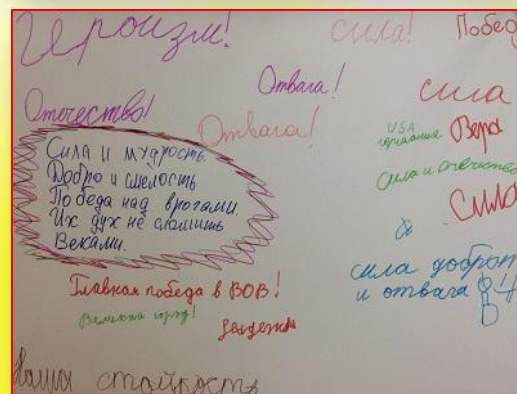 Героизм!
сила!
Побед
Отвага!
сила
Отечество!
Отвага!
USA
германия
Вера
Сила и мудрость.
Добро и смелость
Победа над врагами.
Их дух не сломить
Веками.
сила и отечество
Сила
сила доброт
и отвага
Главная победа в ВОВ!
Великий город!
Надежды
Наши стойкость